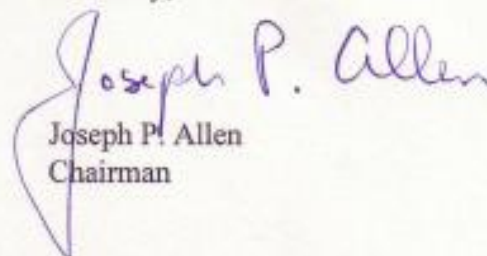 Joseph P. Allen
Joseph P. Allen
Chairman